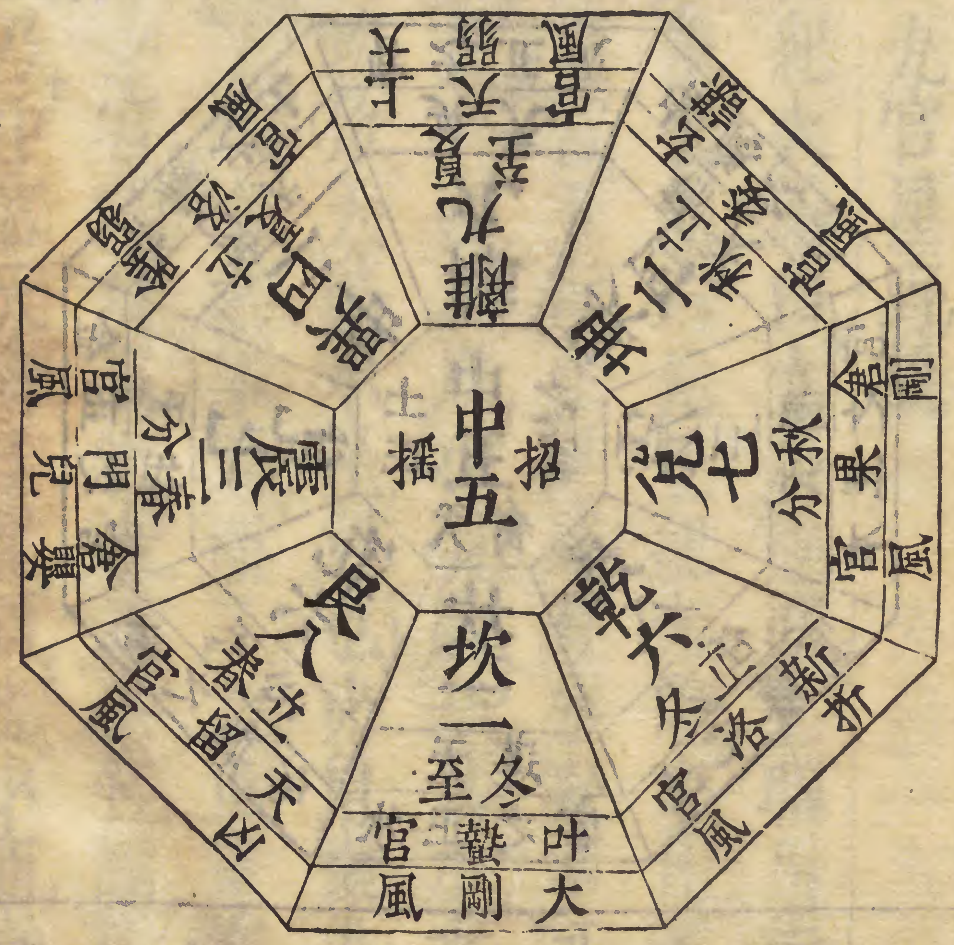 中五
招搖
離九
夏至
上天宮
大弱風
坤二
立秋
玄委宮
謀風
兌七
秋分
倉果宮
剛風
乾六
立冬
新洛宮
折風
坎一
冬至
叶蟄宮
大剛風
艮八
立春
天留宮
凶風
震三
春分
倉門宮
嬰兒風
巽四
立夏
陰洛宮
弱風